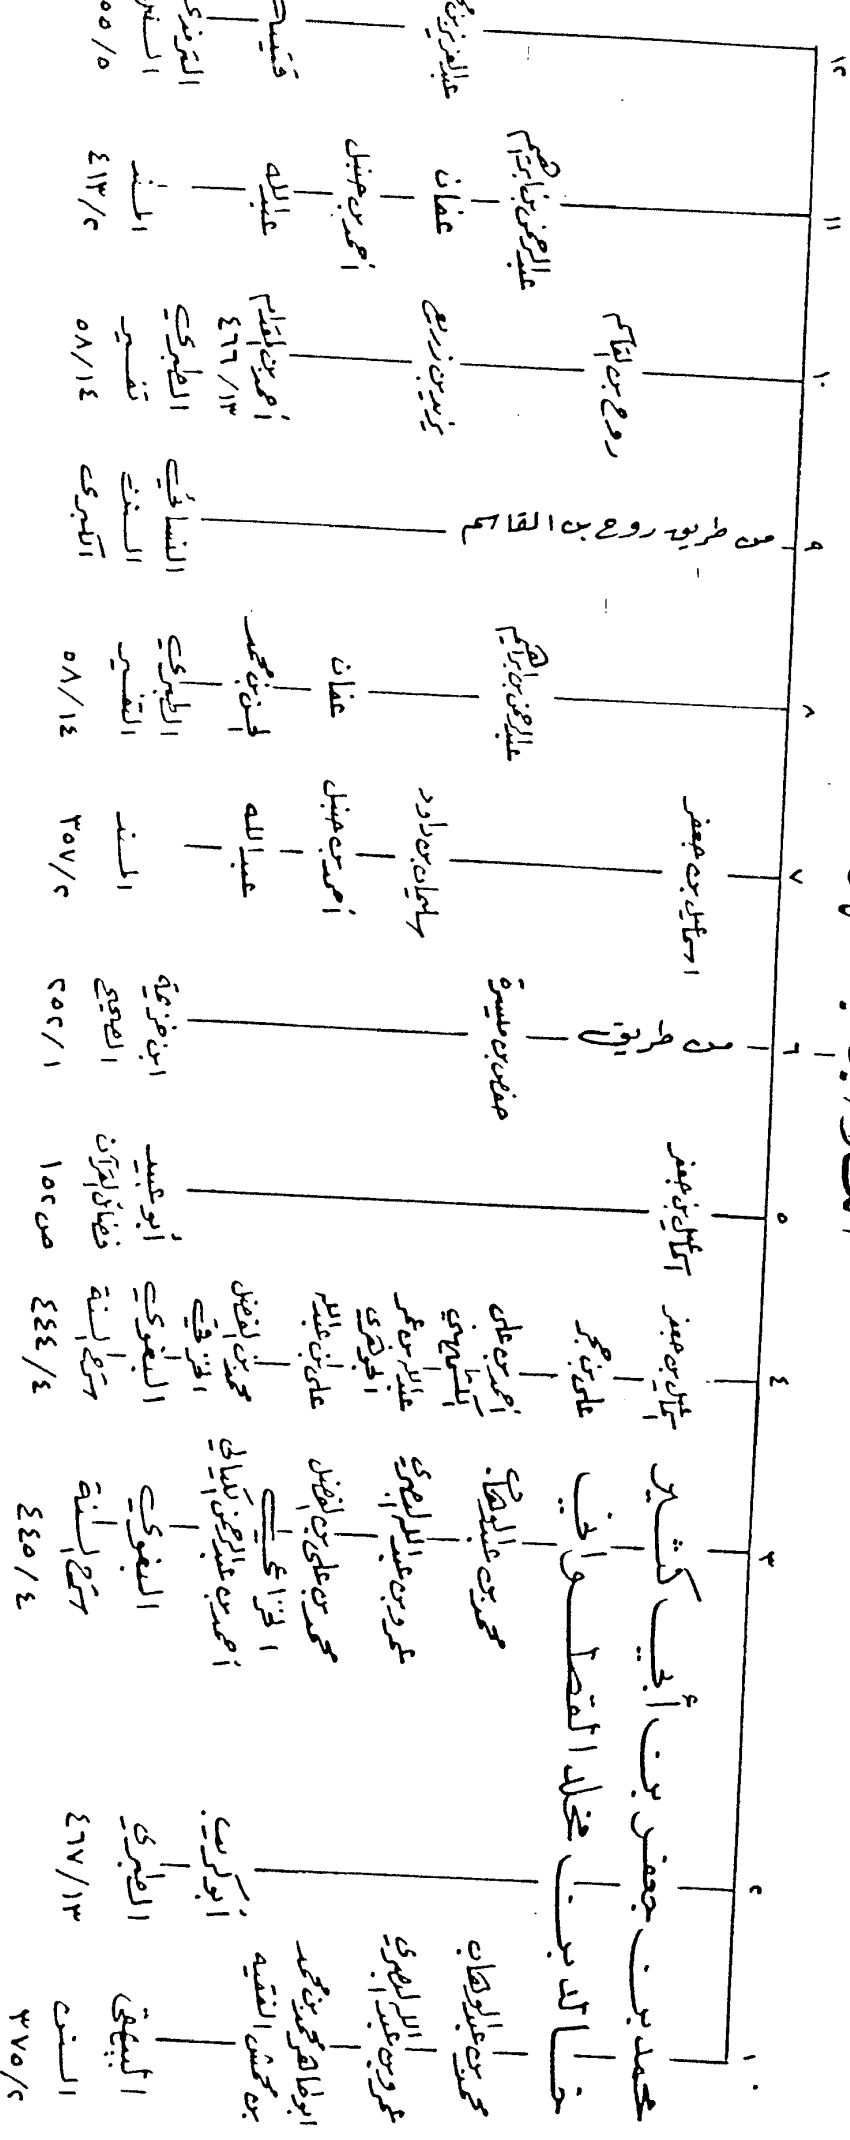 ١
محمد بن جعفر بن أبي كثير
خالد بن مخلد القطواني
محمد بن عبد الوهاب
عمرو بن عبد الله البصري
ابو طاهر محمد بن محمد
بن محمش الفقيه
البيهقي
السنن
٣٧٥/٢
٢
أبو كريب
الطبري
٤٦٧/١٣
٣
محمد بن عبد الوهاب
عمرو بن عبد الله البصري
محمد بن علي بن الفضل
الخزاعي
أحمد بن عبد الرحمن الكيالي
البغوي
شرح السنة
٤٤٥/٤
٤
اسماعيل بن جعفر
علي بن حجر
أحمد بن علي
الكشميهني
عبد الله بن عمر
الجوهري
علي بن عبد الله
محمد بن الفضل
الخرقي
البغوي
شرح السنة
٤٤٤/٤
٥
اسماعيل بن جعفر
أبو عبيد
فضائل القرآن
ص ١٥٢
٦
من طريق
حفص بن ميسرة
ابن خزيمة
الصحيح
٢٥٢/١
٧
اسماعيل بن جعفر
سليمان بن داود
أحمد بن حنبل
عبد الله
المسند
٣٥٧/٢
٨
عبد الرحمن بن ابراهيم
عفان
الحسن بن محمد
الطبري
التفسير
٥٨/١٤
٩
من طريق روح بن القاسم
النسائي
السنن
الكبرى
١٠
روح بن القاسم
يزيد بن زريع
أحمد بن المقدام
٤٦٦/١٣
الطبري
تفسير
٥٨/١٤
١١
عبد الرحمن بن ابراهيم
عفان
أحمد بن حنبل
عبد الله
المسند
٤١٣/٢
١٢
عبد العزيز بن
قتيبة
الترمذي
السنن
٥٥/٥